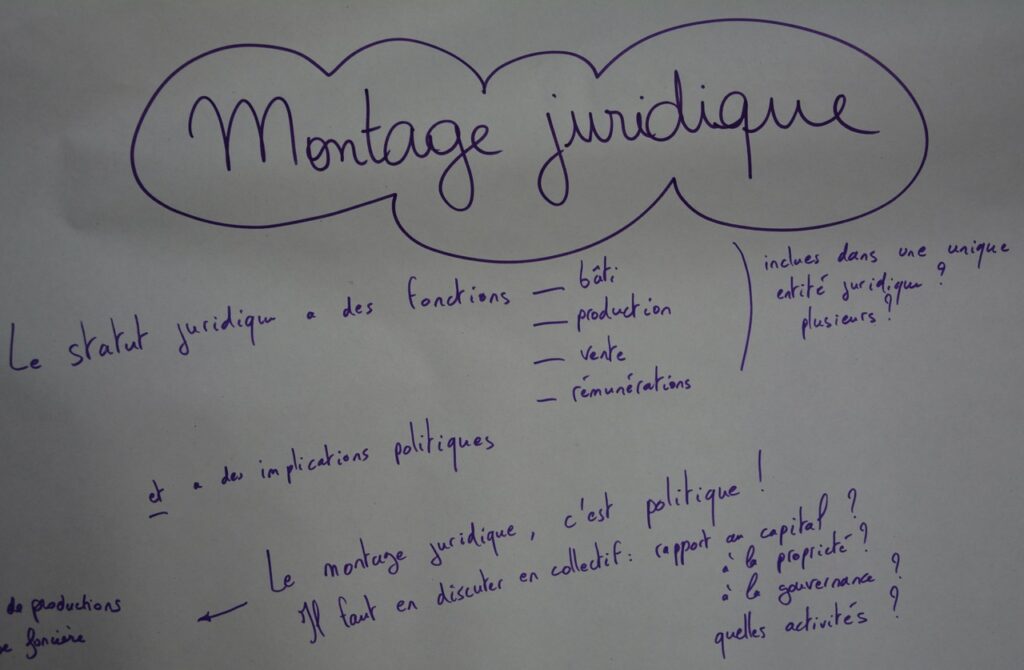 Montage juridique
Le statut juridique a des fonctions
— bâti
— production
— vente
— rémunérations
inclues dans une unique
entité juridique ?
plusieurs ?
et a des implications politiques
Le montage juridique, c'est politique !
Il faut en discuter en collectif : rapport au capital ?
à la propriété ?
à la gouvernance ?
quelles activités ?
de productions
foncière